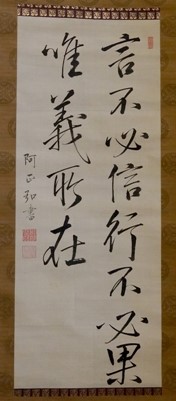 言不必信行不必果
唯義所在
阿正弘書